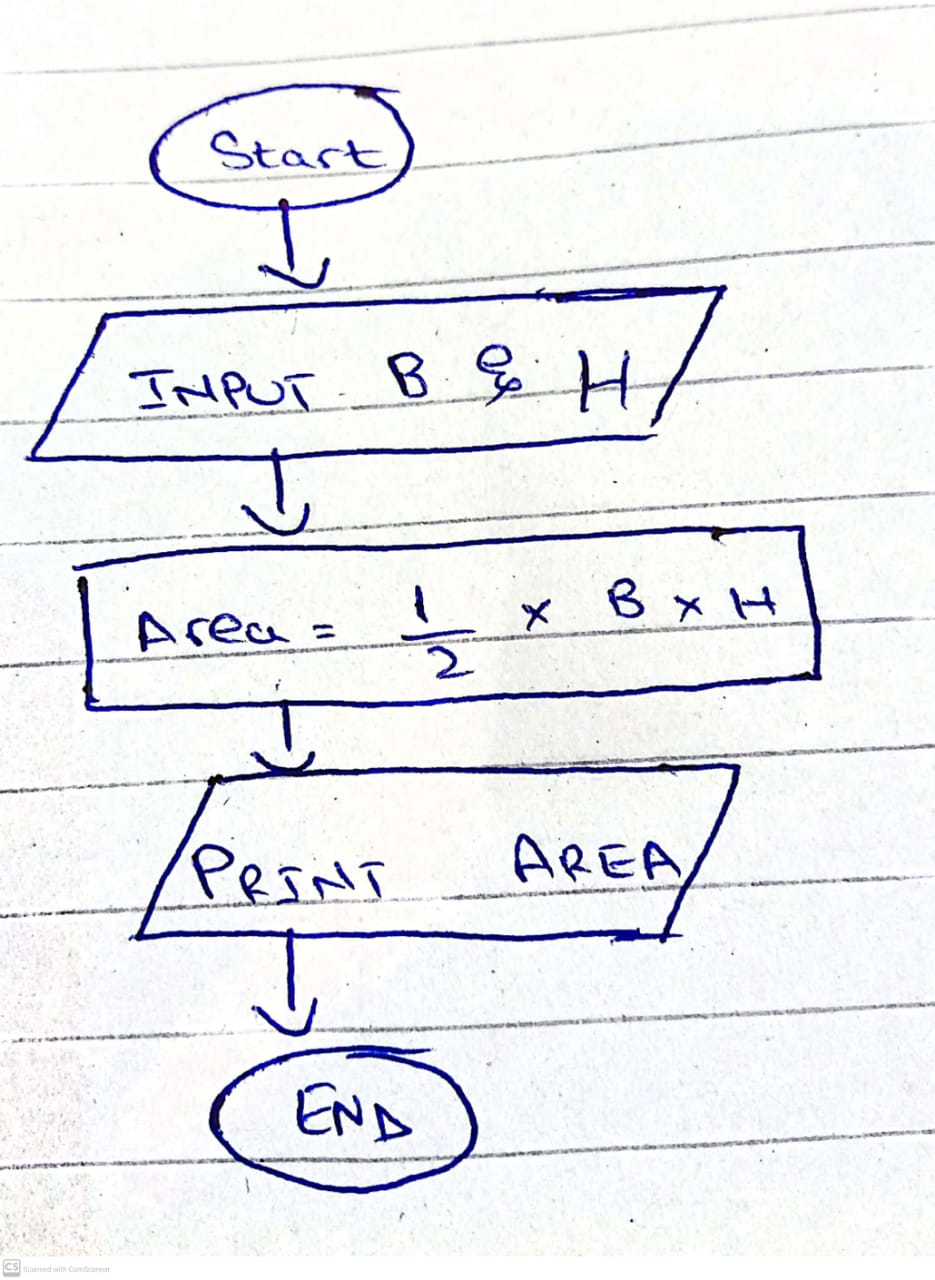 Start
INPUT B & H
Area = 1/2 × B × H
PRINT AREA
END
CS Scanned with CamScanner